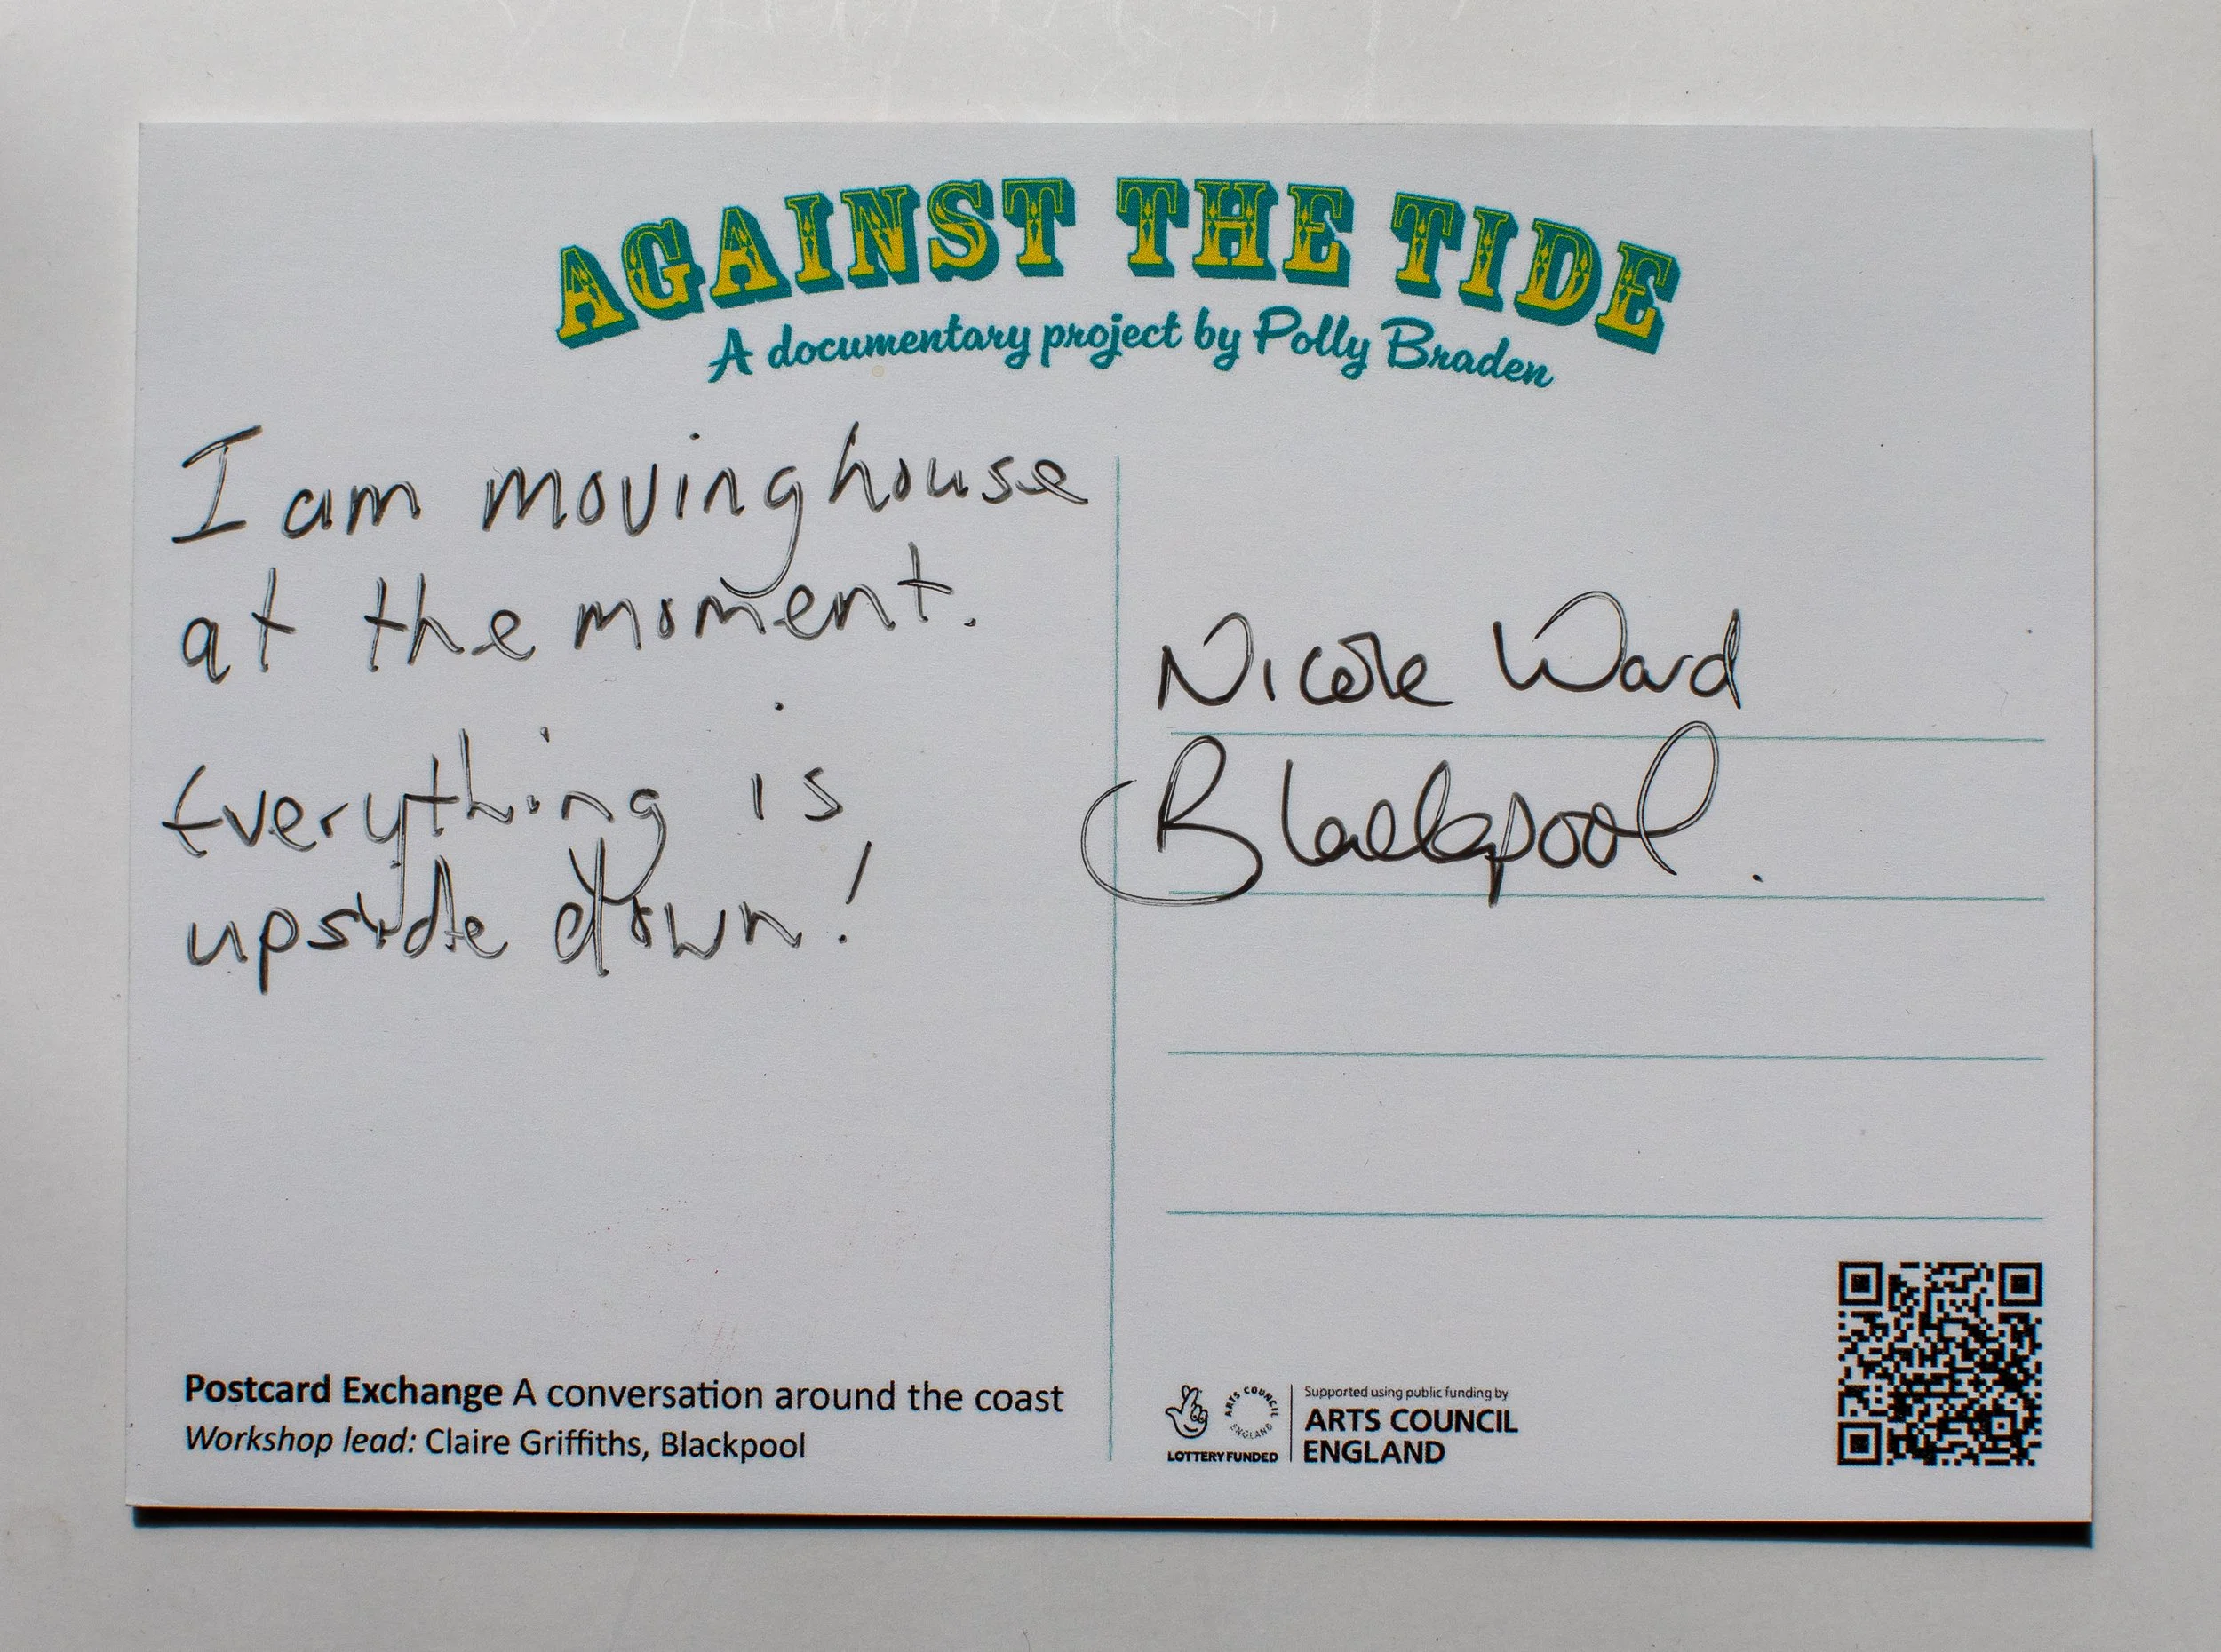 AGAINST THE TIDE
A documentary project by Polly Braden
I am moving house
at the moment.
Everything is
upside down!
Nicole Ward
Blackpool.
Postcard Exchange A conversation around the coast
Workshop lead: Claire Griffiths, Blackpool
LOTTERY FUNDED
ARTS COUNCIL ENGLAND
Supported using public funding by
ARTS COUNCIL
ENGLAND